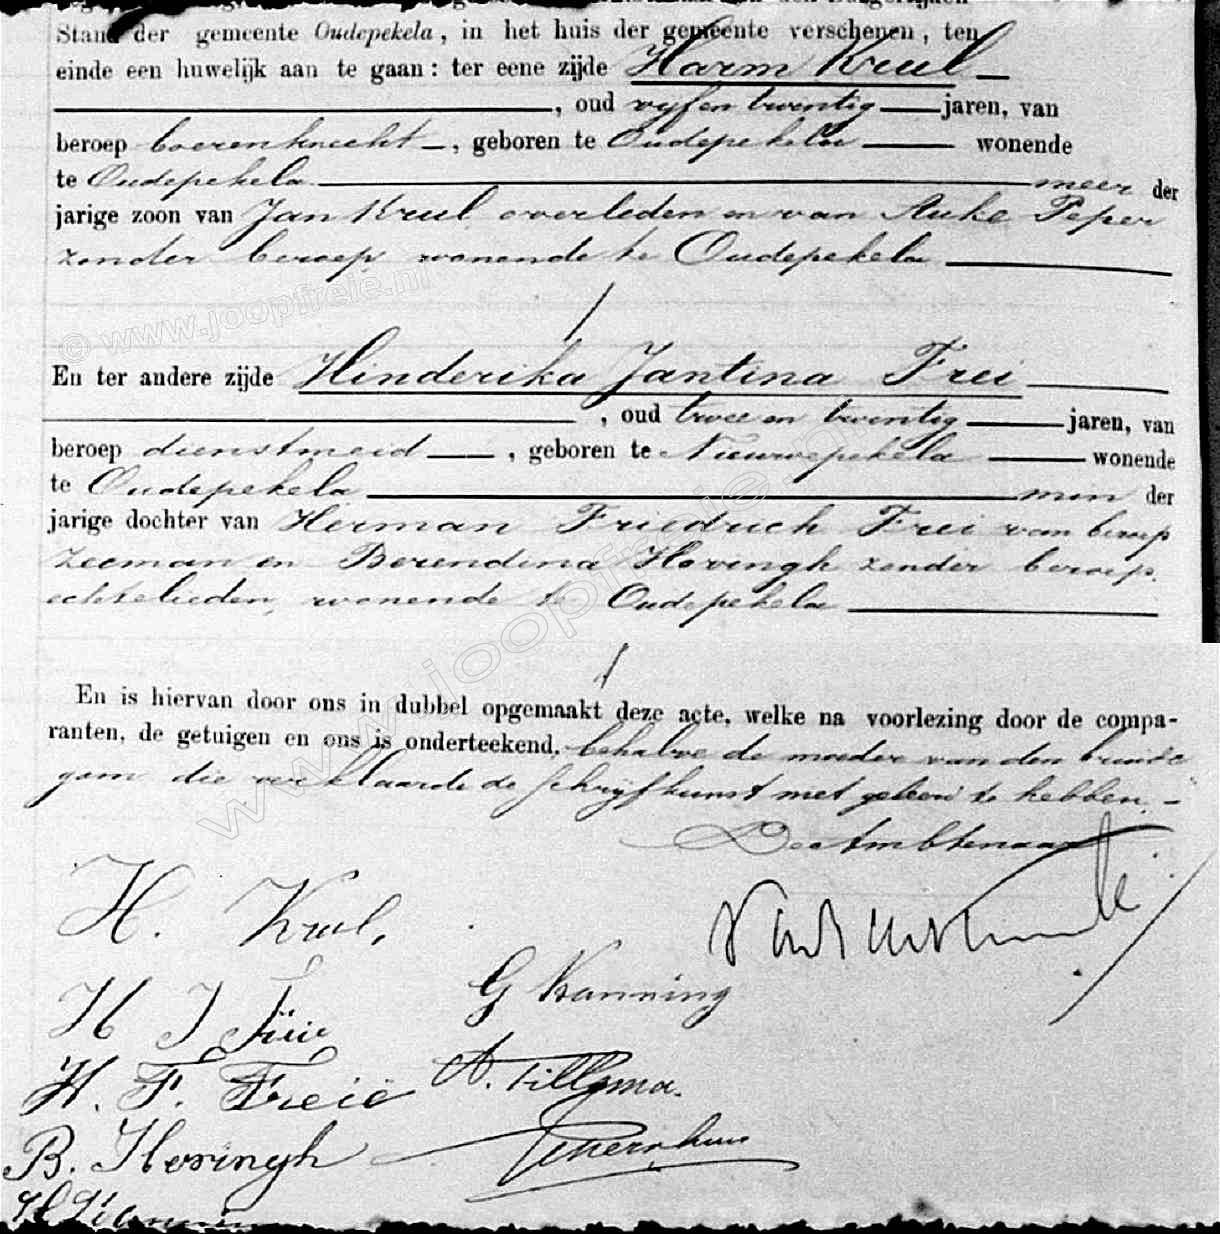 Stand der gemeente Oudepekela, in het huis der gemeente verschenen, ten
einde een huwelijk aan te gaan: ter eene zijde Harm Krul
, oud vijf en twentig jaren, van
beroep boerenknecht, geboren te Oudepekela wonende
te Oudepekela meer der
jarige zoon van Jan Krul overleden en van Auke Peper
zonder beroep wonende te Oudepekela
© www.joopfreie.nl
En ter andere zijde Hinderika Jantina Frei
, oud twee en twentig jaren, van
beroep dienstmeid, geboren te Nieuwepekela wonende
te Oudepekela min der
jarige dochter van Herman Friedrich Frei van beroep
zeeman en Berendina Hovingh zonder beroep
echtelieden, wonende te Oudepekela
www.joopfreie.nl
En is hiervan door ons in dubbel opgemaakt deze acte, welke na voorlezing door de compa-
ranten, de getuigen en ons is onderteekend, behalve de moeder van den bruide
gom die verklaarde de schrijfkunst niet geleerd te hebben.
De Ambtenaar
H. Krul,
H J Freie
G Kanning
H. F. Freië
A. Tillema.
B. Hovingh